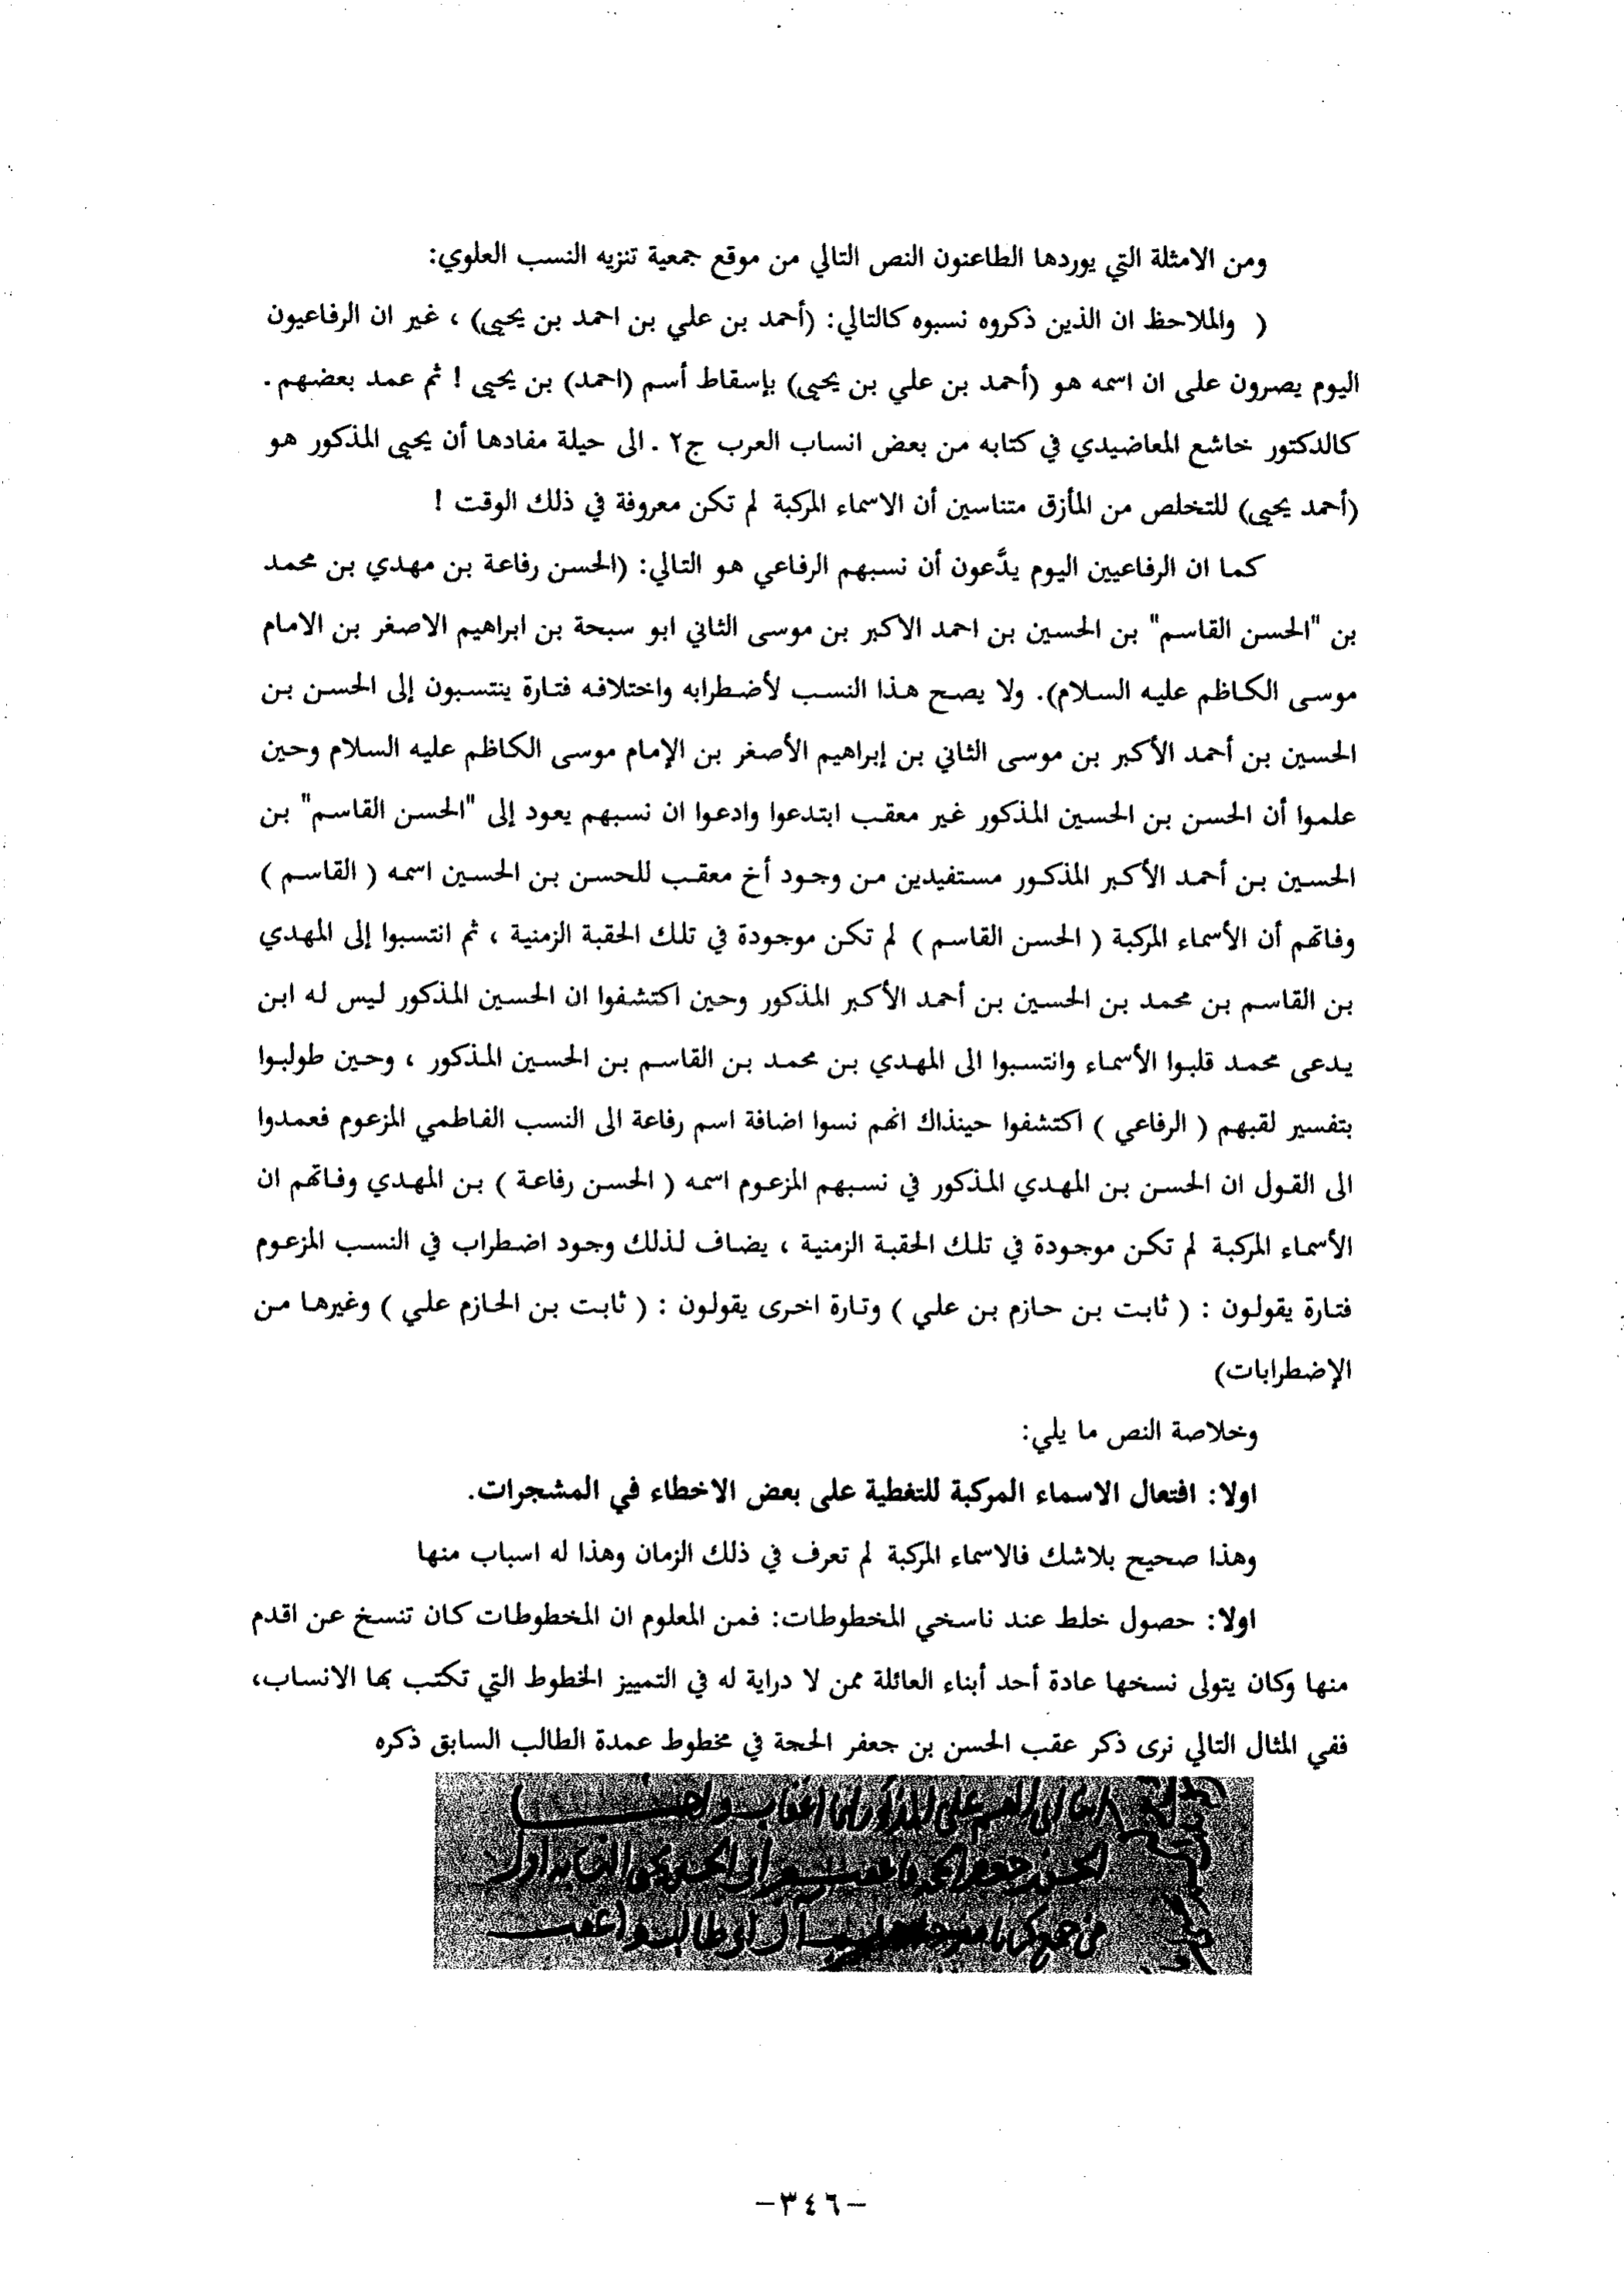 ومن الامثلة التي يوردها الطاعنون النص التالي من موقع جمعية تنزيه النسب العلوي:
( والملاحظ ان الذين ذكروه نسبوه كالتالي: (أحمد بن علي بن احمد بن يحيى) ، غير ان الرفاعيون
اليوم يصرون على ان اسمه هو (أحمد بن علي بن يحيى) بإسقاط أسم (احمد) بن يحيى ! ثم عمد بعضهم .
كالدكتور خاشع المعاضيدي في كتابه من بعض انساب العرب ج٢ . الى حيلة مفادها أن يحيى المذكور هو
(أحمد يحيى) للتخلص من المأزق متناسين أن الاسماء المركبة لم تكن معروفة في ذلك الوقت !
كما ان الرفاعيين اليوم يدَّعون أن نسبهم الرفاعي هو التالي: (الحسن رفاعة بن مهدي بن محمد
بن "الحسن القاسم" بن الحسين بن احمد الاكبر بن موسى الثاني ابو سبحة بن ابراهيم الاصغر بن الامام
موسى الكاظم عليه السلام). ولا يصح هذا النسب لأضطرابه واختلافه فتارة ينتسبون إلى الحسن بن
الحسين بن أحمد الأكبر بن موسى الثاني بن إبراهيم الأصغر بن الإمام موسى الكاظم عليه السلام وحين
علموا أن الحسن بن الحسين المذكور غير معقب ابتدعوا وادعوا ان نسبهم يعود إلى "الحسن القاسم" بن
الحسين بن أحمد الأكبر المذكور مستفيدين من وجود أخ معقب للحسن بن الحسين اسمه ( القاسم )
وفاتهم أن الأسماء المركبة ( الحسن القاسم ) لم تكن موجودة في تلك الحقبة الزمنية ، ثم انتسبوا إلى المهدي
بن القاسم بن محمد بن الحسين بن أحمد الأكبر المذكور وحين اكتشفوا ان الحسين المذكور ليس له ابن
يدعى محمد قلبوا الأسماء وانتسبوا الى المهدي بن محمد بن القاسم بن الحسين المذكور ، وحين طولبوا
بتفسير لقبهم ( الرفاعي ) اكتشفوا حينذاك انهم نسوا اضافة اسم رفاعة الى النسب الفاطمي المزعوم فعمدوا
الى القول ان الحسن بن المهدي المذكور في نسبهم المزعوم اسمه ( الحسن رفاعة ) بن المهدي وفاتهم ان
الأسماء المركبة لم تكن موجودة في تلك الحقبة الزمنية ، يضاف لذلك وجود اضطراب في النسب المزعوم
فتارة يقولون : ( ثابت بن حازم بن علي ) وتارة اخرى يقولون : ( ثابت بن الحازم علي ) وغيرها من
الإضطرابات)
وخلاصة النص ما يلي:
اولا: افتعال الاسماء المركبة للتغطية على بعض الاخطاء في المشجرات.
وهذا صحيح بلاشك فالاسماء المركبة لم تعرف في ذلك الزمان وهذا له اسباب منها
اولا: حصول خلط عند ناسخي المخطوطات: فمن المعلوم ان المخطوطات كان تنسخ عن اقدم
منها وكان يتولى نسخها عادة أحد أبناء العائلة ممن لا دراية له في التمييز الخطوط التي تكتب بها الانساب،
ففي المثال التالي نرى ذكر عقب الحسن بن جعفر الحجة في مخطوط عمدة الطالب السابق ذكره
-٣٤٦-